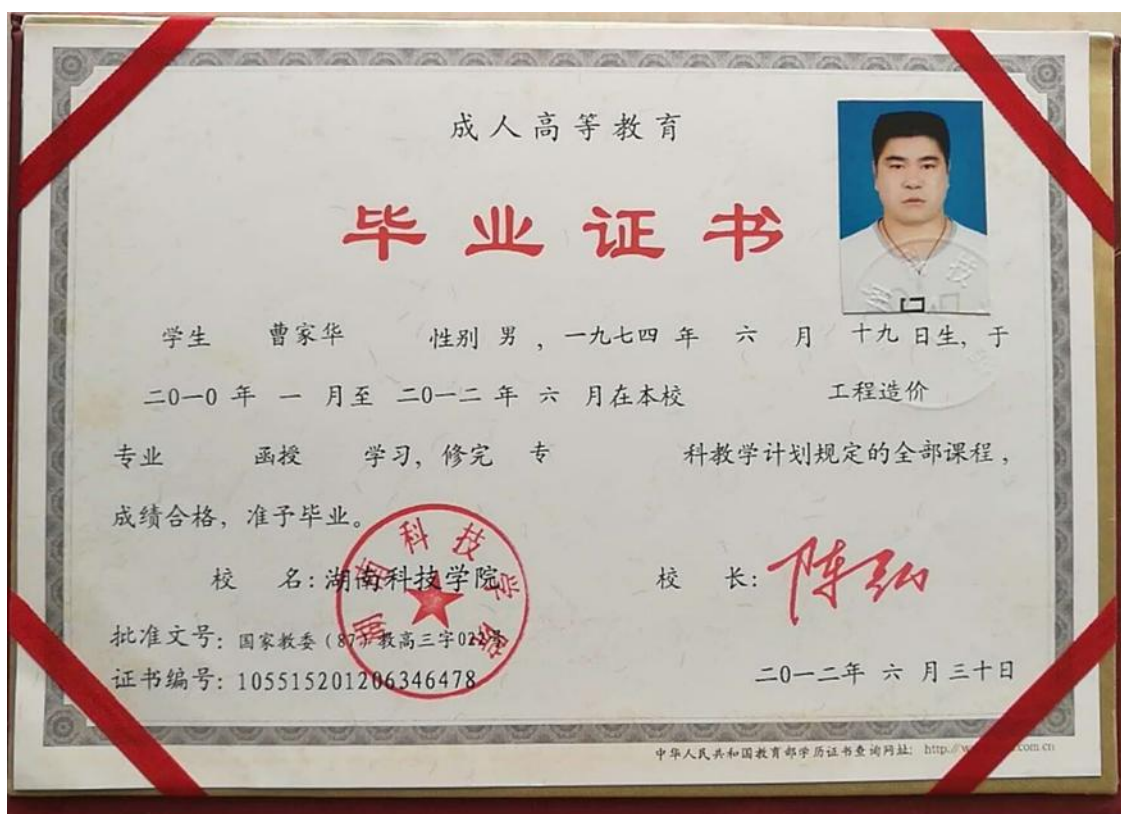 成人高等教育
毕业证书
学生 曹家华 性别 男 , 一九七四 年 六 月 十九 日生, 于
二0一0 年 一 月至 二0一二 年 六 月在本校 工程造价
专业 函授 学习, 修完 专 科教学计划规定的全部课程,
成绩合格, 准予毕业。
校 名: 湖南科技学院 校 长: 陈弘
湖南科技学院
批准文号: 国家教委(87)教高三字022号
证书编号: 105515201206346478
二0一二年 六 月三十日
中华人民共和国教育部学历证书查询网址: http://w .com.cn